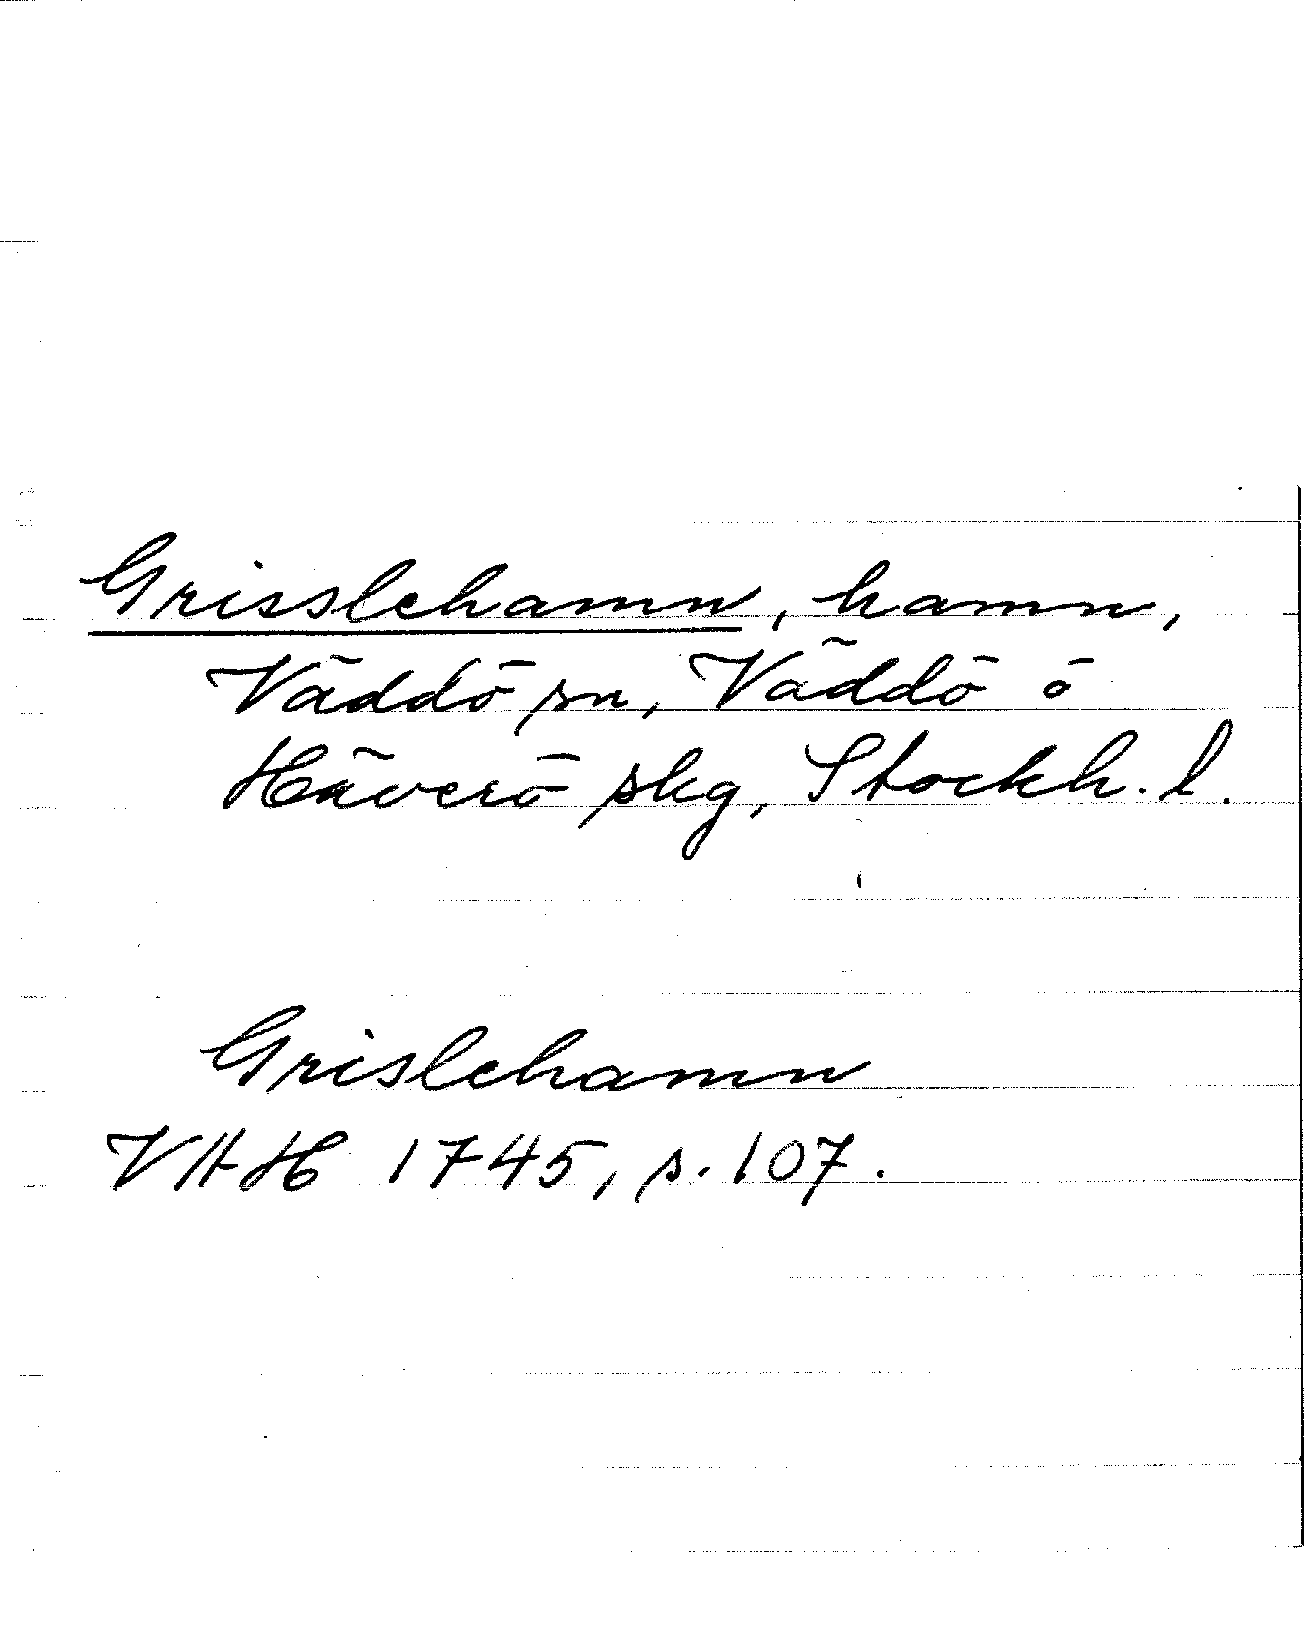 Grisslehamn, hamn,
Väddö sn, Väddö o
Häverö skg, Stockh. l.
Grislehamn
VHH 1745, s. 107.